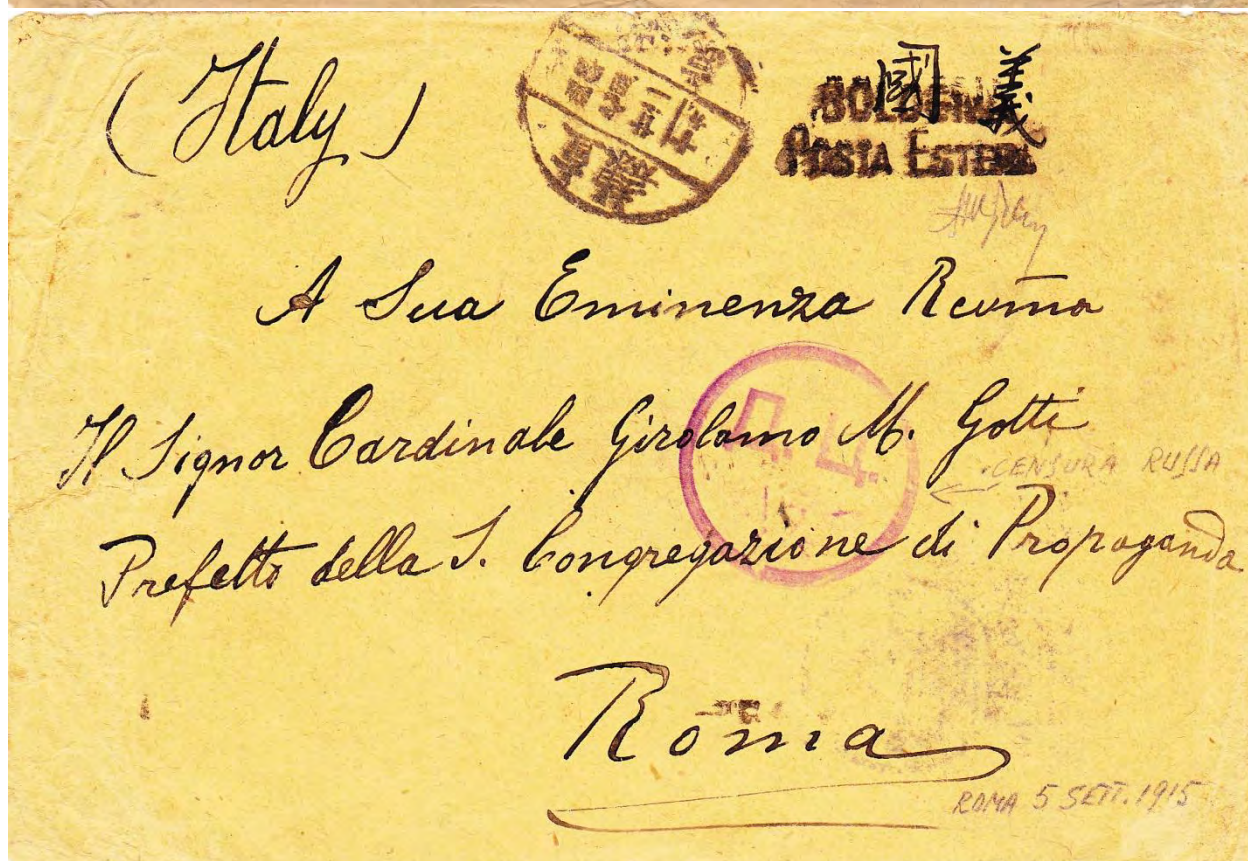 (Italy)
義國
BOLOGNA
POSTA ESTERA
A Sua Eminenza Revma
Il Signor Cardinale Girolamo M. Gotti
Д. Ц.
CENSURA RUSSA
Prefetto della S. Congregazione di Propaganda
Roma
ROMA 5 SETT. 1915